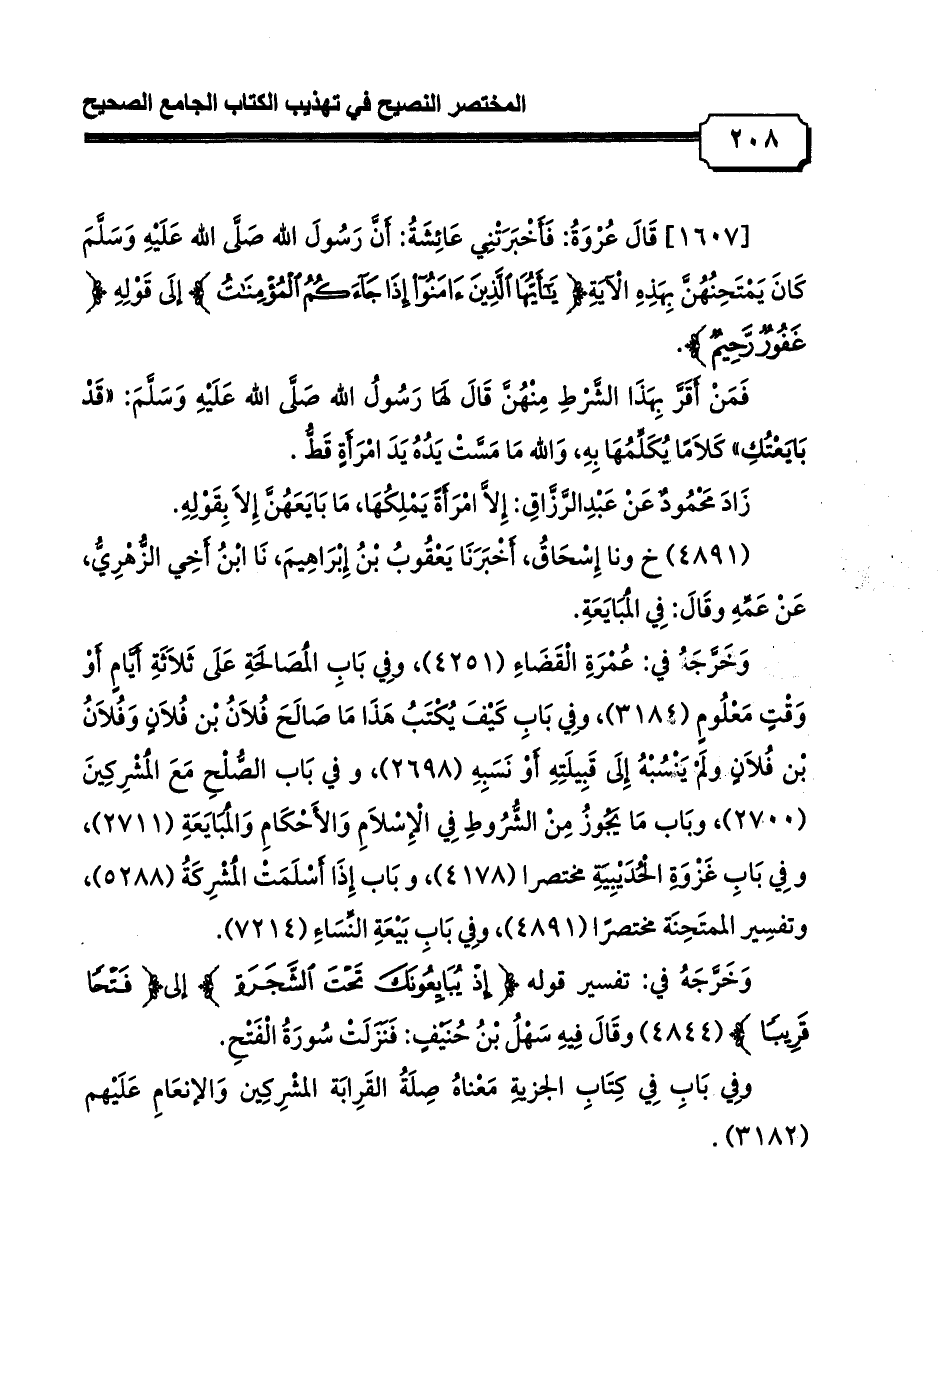 المختصر النصيح في تهذيب الكتاب الجامع الصحيح
٢٠٨
[١٦٠٧] قَالَ عُرْوَةُ: فَأَخْبَرَتْنِي عَائِشَةُ: أَنَّ رَسُولَ الله صَلَّى الله عَلَيْهِ وَسَلَّمَ
كَانَ يَمْتَحِنُهُنَّ بِهَذِهِ الْآيَةِ ﴿ يَٰٓأَيُّهَا ٱلَّذِينَ ءَامَنُوٓا۟ إِذَا جَآءَكُمُ ٱلْمُؤْمِنَٰتُ ﴾ إِلَى قَوْلِهِ ﴿
غَفُورٌ رَّحِيمٌ ﴾.
فَمَنْ أَقَرَّ بِهَذَا الشَّرْطِ مِنْهُنَّ قَالَ لَهَا رَسُولُ الله صَلَّى الله عَلَيْهِ وَسَلَّمَ: «قَدْ
بَايَعْتُكِ» كَلاَمًا يُكَلِّمُهَا بِهِ، وَالله مَا مَسَّتْ يَدُهُ يَدَ امْرَأَةٍ قَطُّ .
زَادَ مَحْمُودٌ عَنْ عَبْدِالرَّزَّاقِ: إِلاَّ امْرَأَةً يَمْلِكُهَا، مَا بَايَعَهُنَّ إِلاَ بِقَوْلِهِ.
(٤٨٩١) خ ونا إِسْحَاقُ، أَخْبَرَنَا يَعْقُوبُ بْنُ إِبْرَاهِيمَ، نَا ابْنُ أَخِي الزُّهْرِيُّ،
عَنْ عَمِّهِ وقَالَ: فِي المُبَايَعَةِ.
وَخَرَّجَهُ في: عُمْرَةِ الْقَضَاءِ (٤٢٥١)، وفِي بَابِ المُصَالَحَةِ عَلَى ثَلاَثَةِ أَيَّامٍ أَوْ
وَقْتٍ مَعْلُومٍ (٣١٨٤)، وفِي بَابِ كَيْفَ يُكْتَبُ هَذَا مَا صَالَحَ فُلاَنُ بْن فُلاَنٍ وَفُلاَنُ
بْن فُلاَنٍ ولَمْ يَنْسُبْهُ إِلَى قَبِيلَتِهِ أَوْ نَسَبِهِ (٢٦٩٨)، و في بَاب الصُّلْحِ مَعَ المُشْرِكِينَ
(٢٧٠٠)، وبَاب مَا يَجُوزُ مِنْ الشُّرُوطِ فِي الْإِسْلاَمِ وَالأَحْكَامِ وَالمُبَايَعَةِ (٢٧١١)،
وفِي بَابِ غَزْوَةِ الْحُدَيْبِيَةِ مختصرا (٤١٧٨)، و بَاب إِذَا أَسْلَمَتْ المُشْرِكَةُ (٥٢٨٨)،
وتفسِير الممتَحِنَة مختصرًا (٤٨٩١)، وفِي بَابِ بَيْعَةِ النِّسَاءِ (٧٢١٤).
وَخَرَّجَهُ في: تفسير قوله ﴿ إِذْ يُبَايِعُونَكَ تَحْتَ ٱلشَّجَرَةِ ﴾ إلى ﴿ فَتْحًا
قَرِيبًا ﴾ (٤٨٤٤) وقَالَ فِيهِ سَهْلُ بْنُ حُنَيْفٍ: فَنَزَلَتْ سُورَةُ الْفَتْحِ.
وفِي بَابِ فِي كِتَابِ الجزيةِ مَعْناهُ صِلَةُ القَرابَة المشْرِكِينِ وَالإنعَامِ عَلَيْهم
(٣١٨٢) .